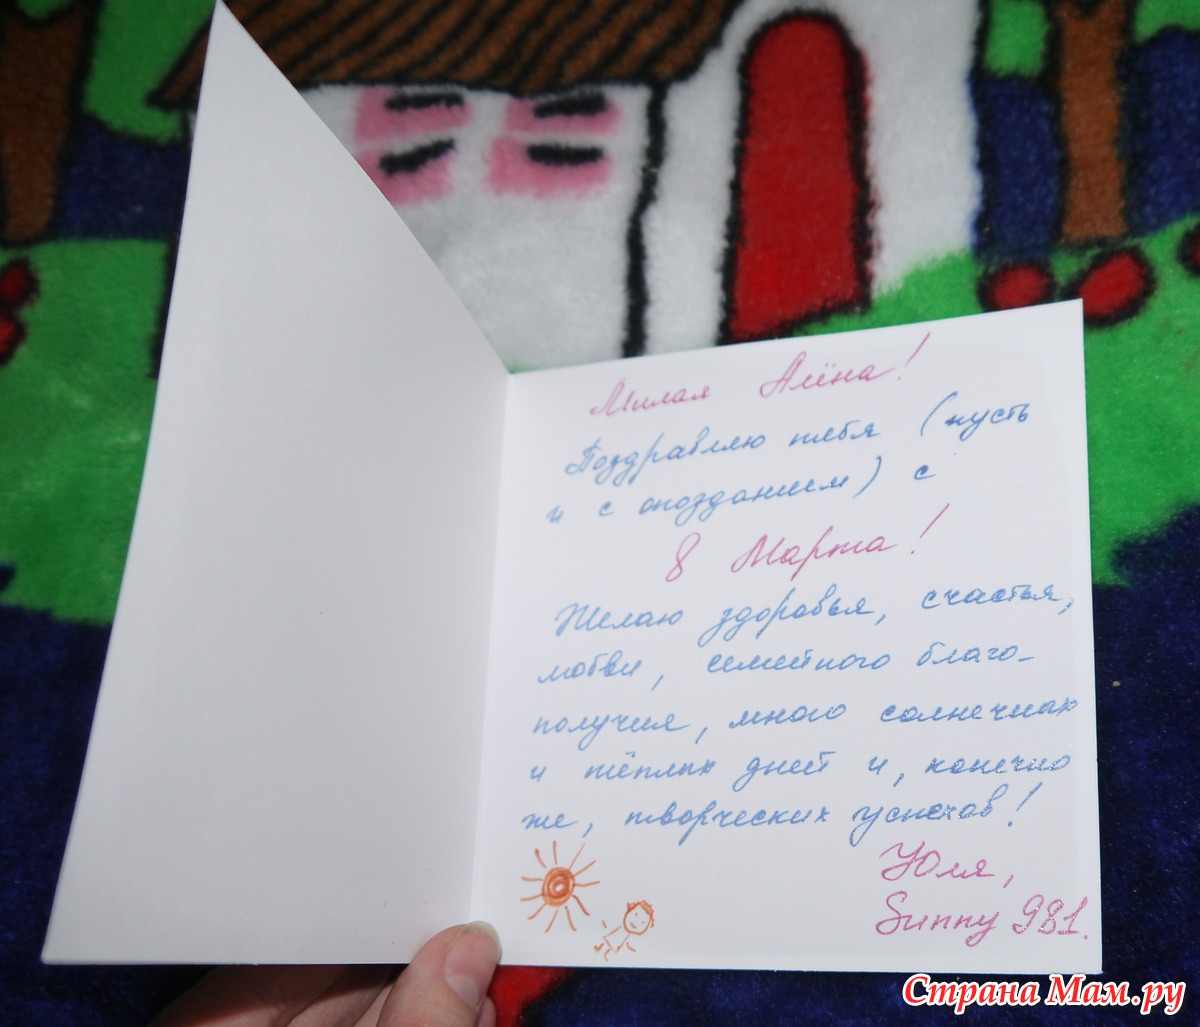 Милая Алёна!
Поздравляю тебя (пусть
и с опозданием) с
8 Марта!
Желаю здоровья, счастья,
любви, семейного благо-
получия, много солнечных
и тёплых дней и, конечно
же, творческих успехов!
Юля,
Sunny 981.
Страна Мам.ру